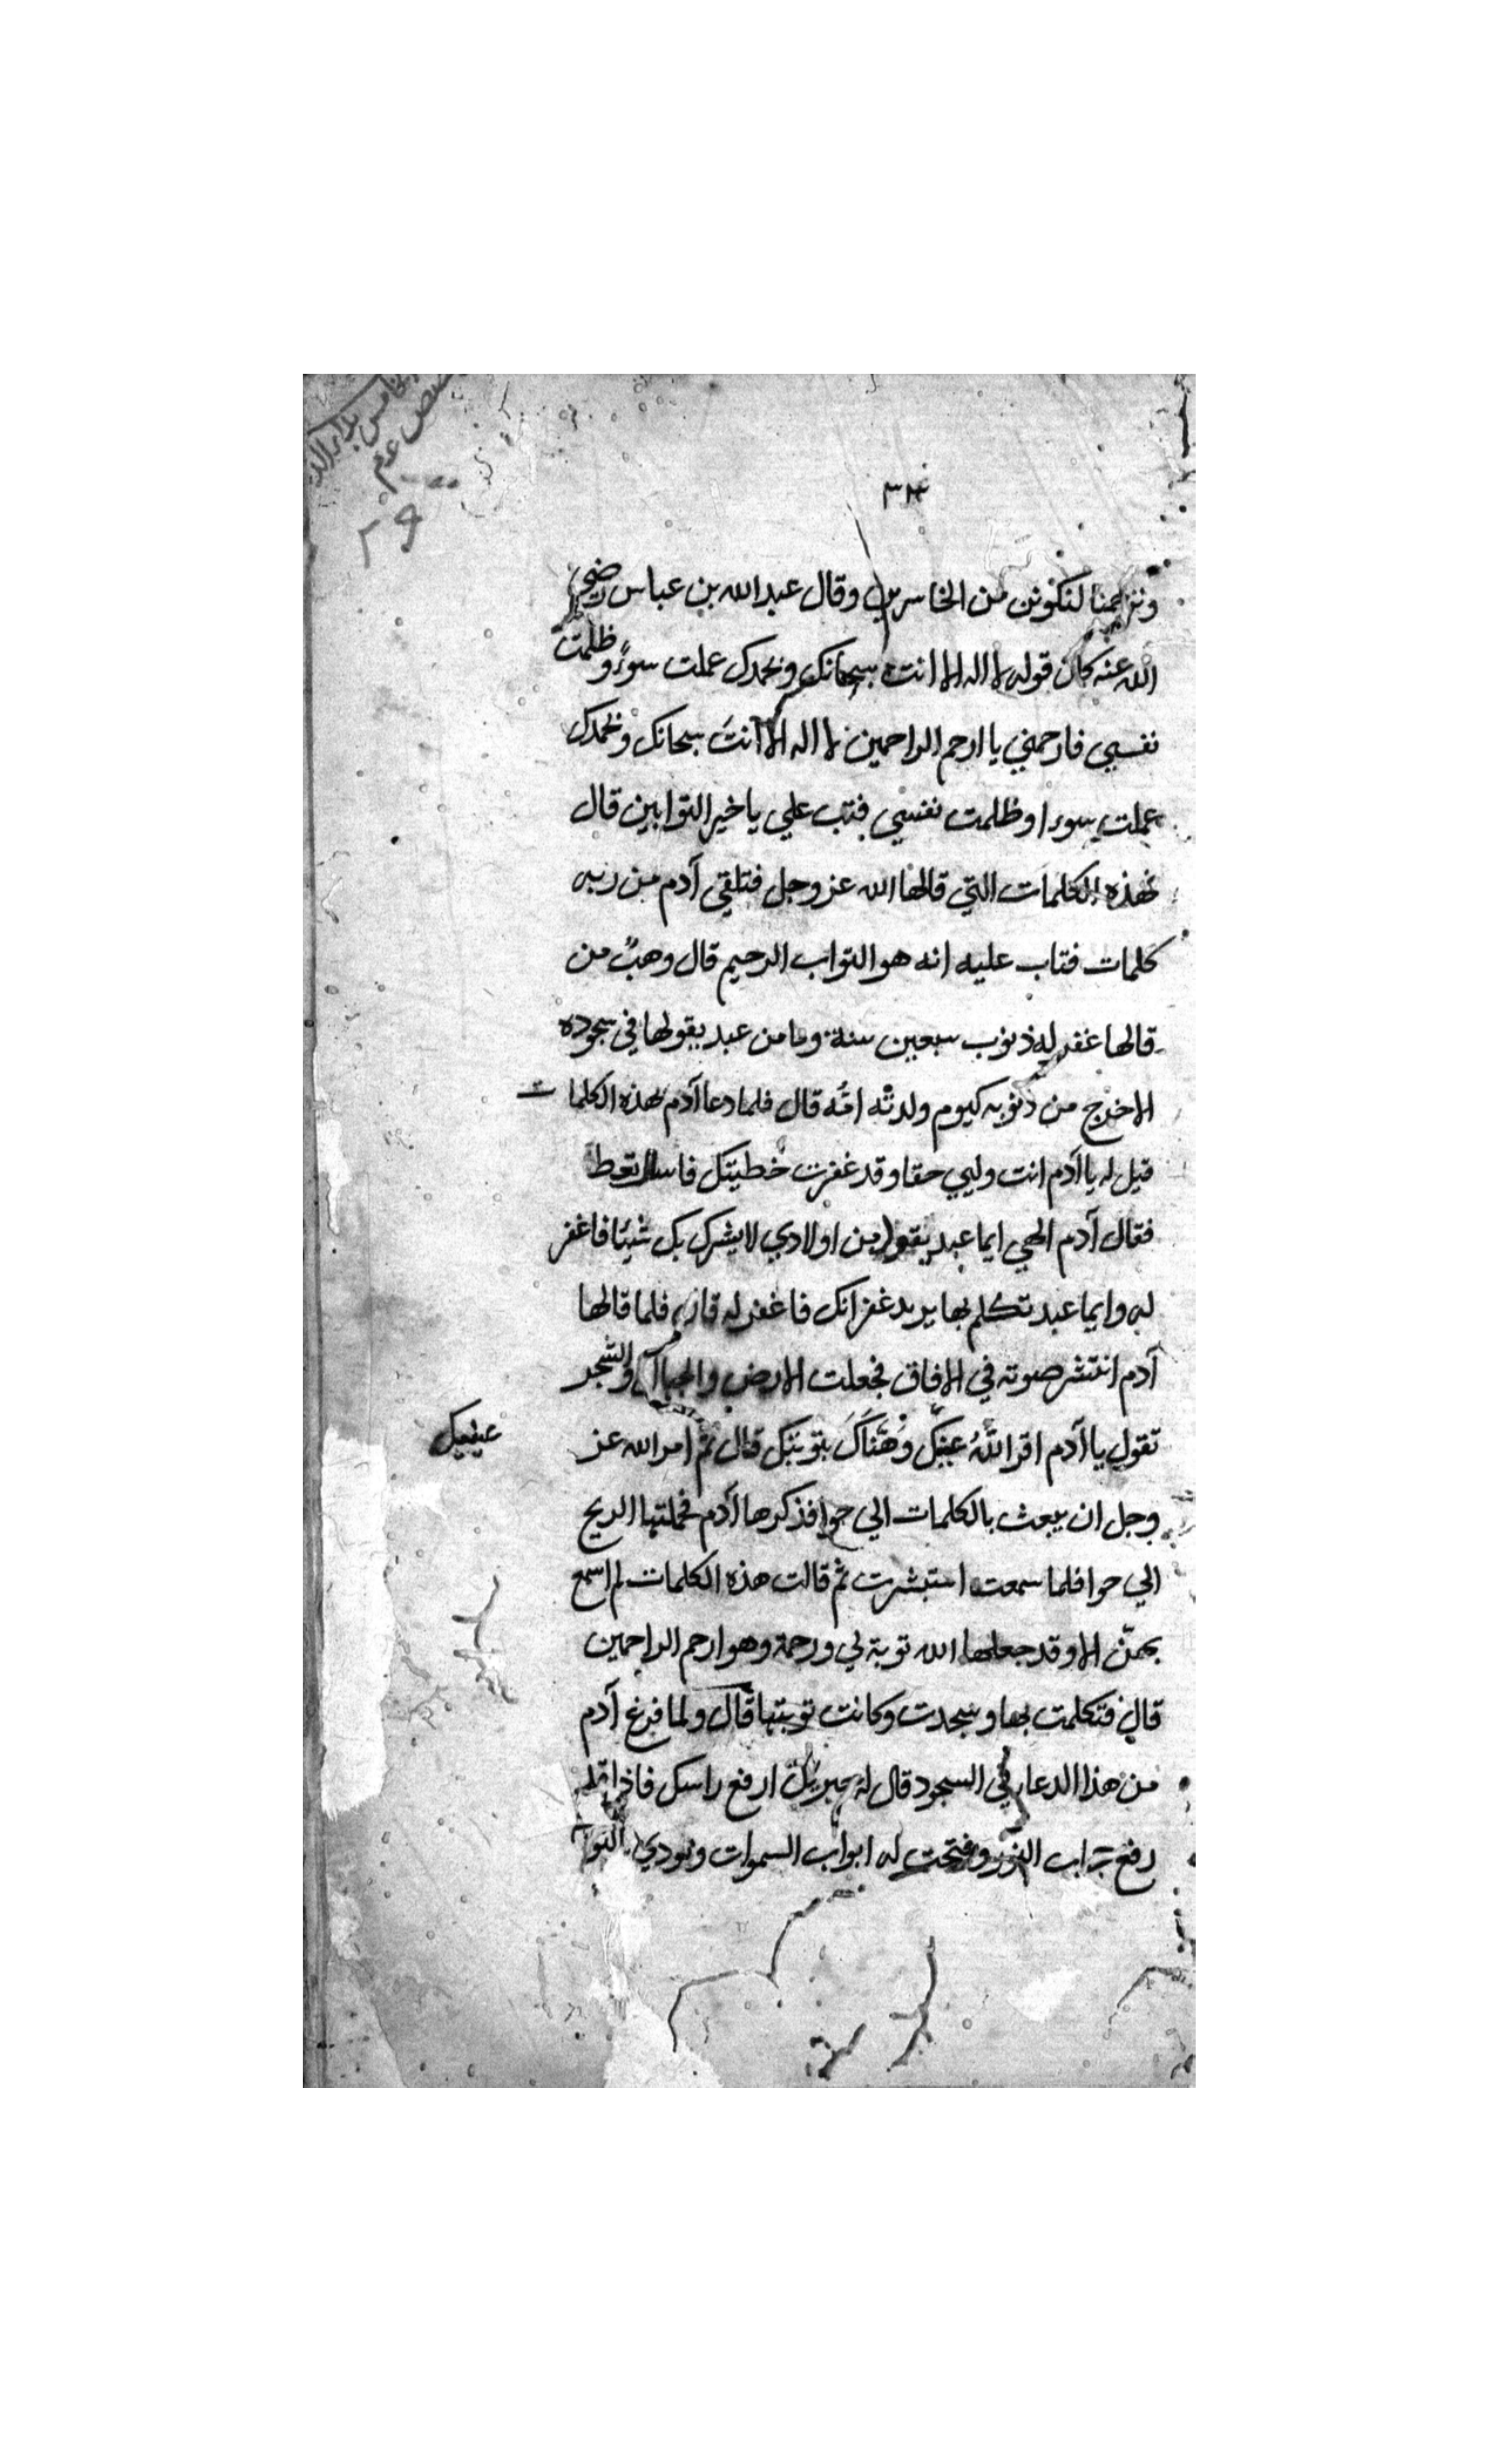 ٣٤
وترحمنا لنكونن من الخاسرين وقال عبد الله بن عباس رضي
الله عنه كان قوله لا اله الا انت سبحانك وبحمدك عملت سوءً وظلمت
نفسي فارحمني يا ارحم الراحمين لا اله الا انتَ سبحانك وبحمدك
عملت سوءا وظلمت نفسي فتب علي يا خير التوابين قال
فهذه الكلمات التي قالها الله عز وجل فتلقي آدم من ربه
كلمات فتاب عليه انه هو التواب الرحيم قال وهبٌ من
قالها غفر له ذنوب سبعين سنة وما من عبد يقولها في سجوده
الا خرج من ذنوبه كيوم ولدتْه امّه قال فلما دعا آدم بهذه الكلمات
قيل له يا آدم انت وليي حقا وقد غفرت خطيتك فاسال تعط
فقال آدم الهي ايما عبد يقول من اولادي لا يشرك بك شيئا فاغفر
له وايما عبد تكلم بها يريد غفرانك فاغفر له قال فلما قالها
آدم انتشر صوته في الافاق فجعلت الارض والجبال والشجر
تقول يا آدم اقر اللّٰهُ عينك وَهَنَّاكَ بتوبتك قال ثم امر الله عز
عينيك
وجل ان يبعث بالكلمات الي حوا فذكرها آدم فحملتها الريح
الي حوا فلما سمعت استبشرت ثم قالت هذه الكلمات لم اسمع
بهمنّ الا وقد جعلها الله توبة لي ورحمة وهو ارحم الراحمين
قال فتكلمت بها وسجدت وكانت توبتها قال ولما فرغ آدم
من هذا الدعا في السجود قال له جبريل ارفع راسك فاذا
رفع حجاب النور وفتحت له ابواب السموات ونودي